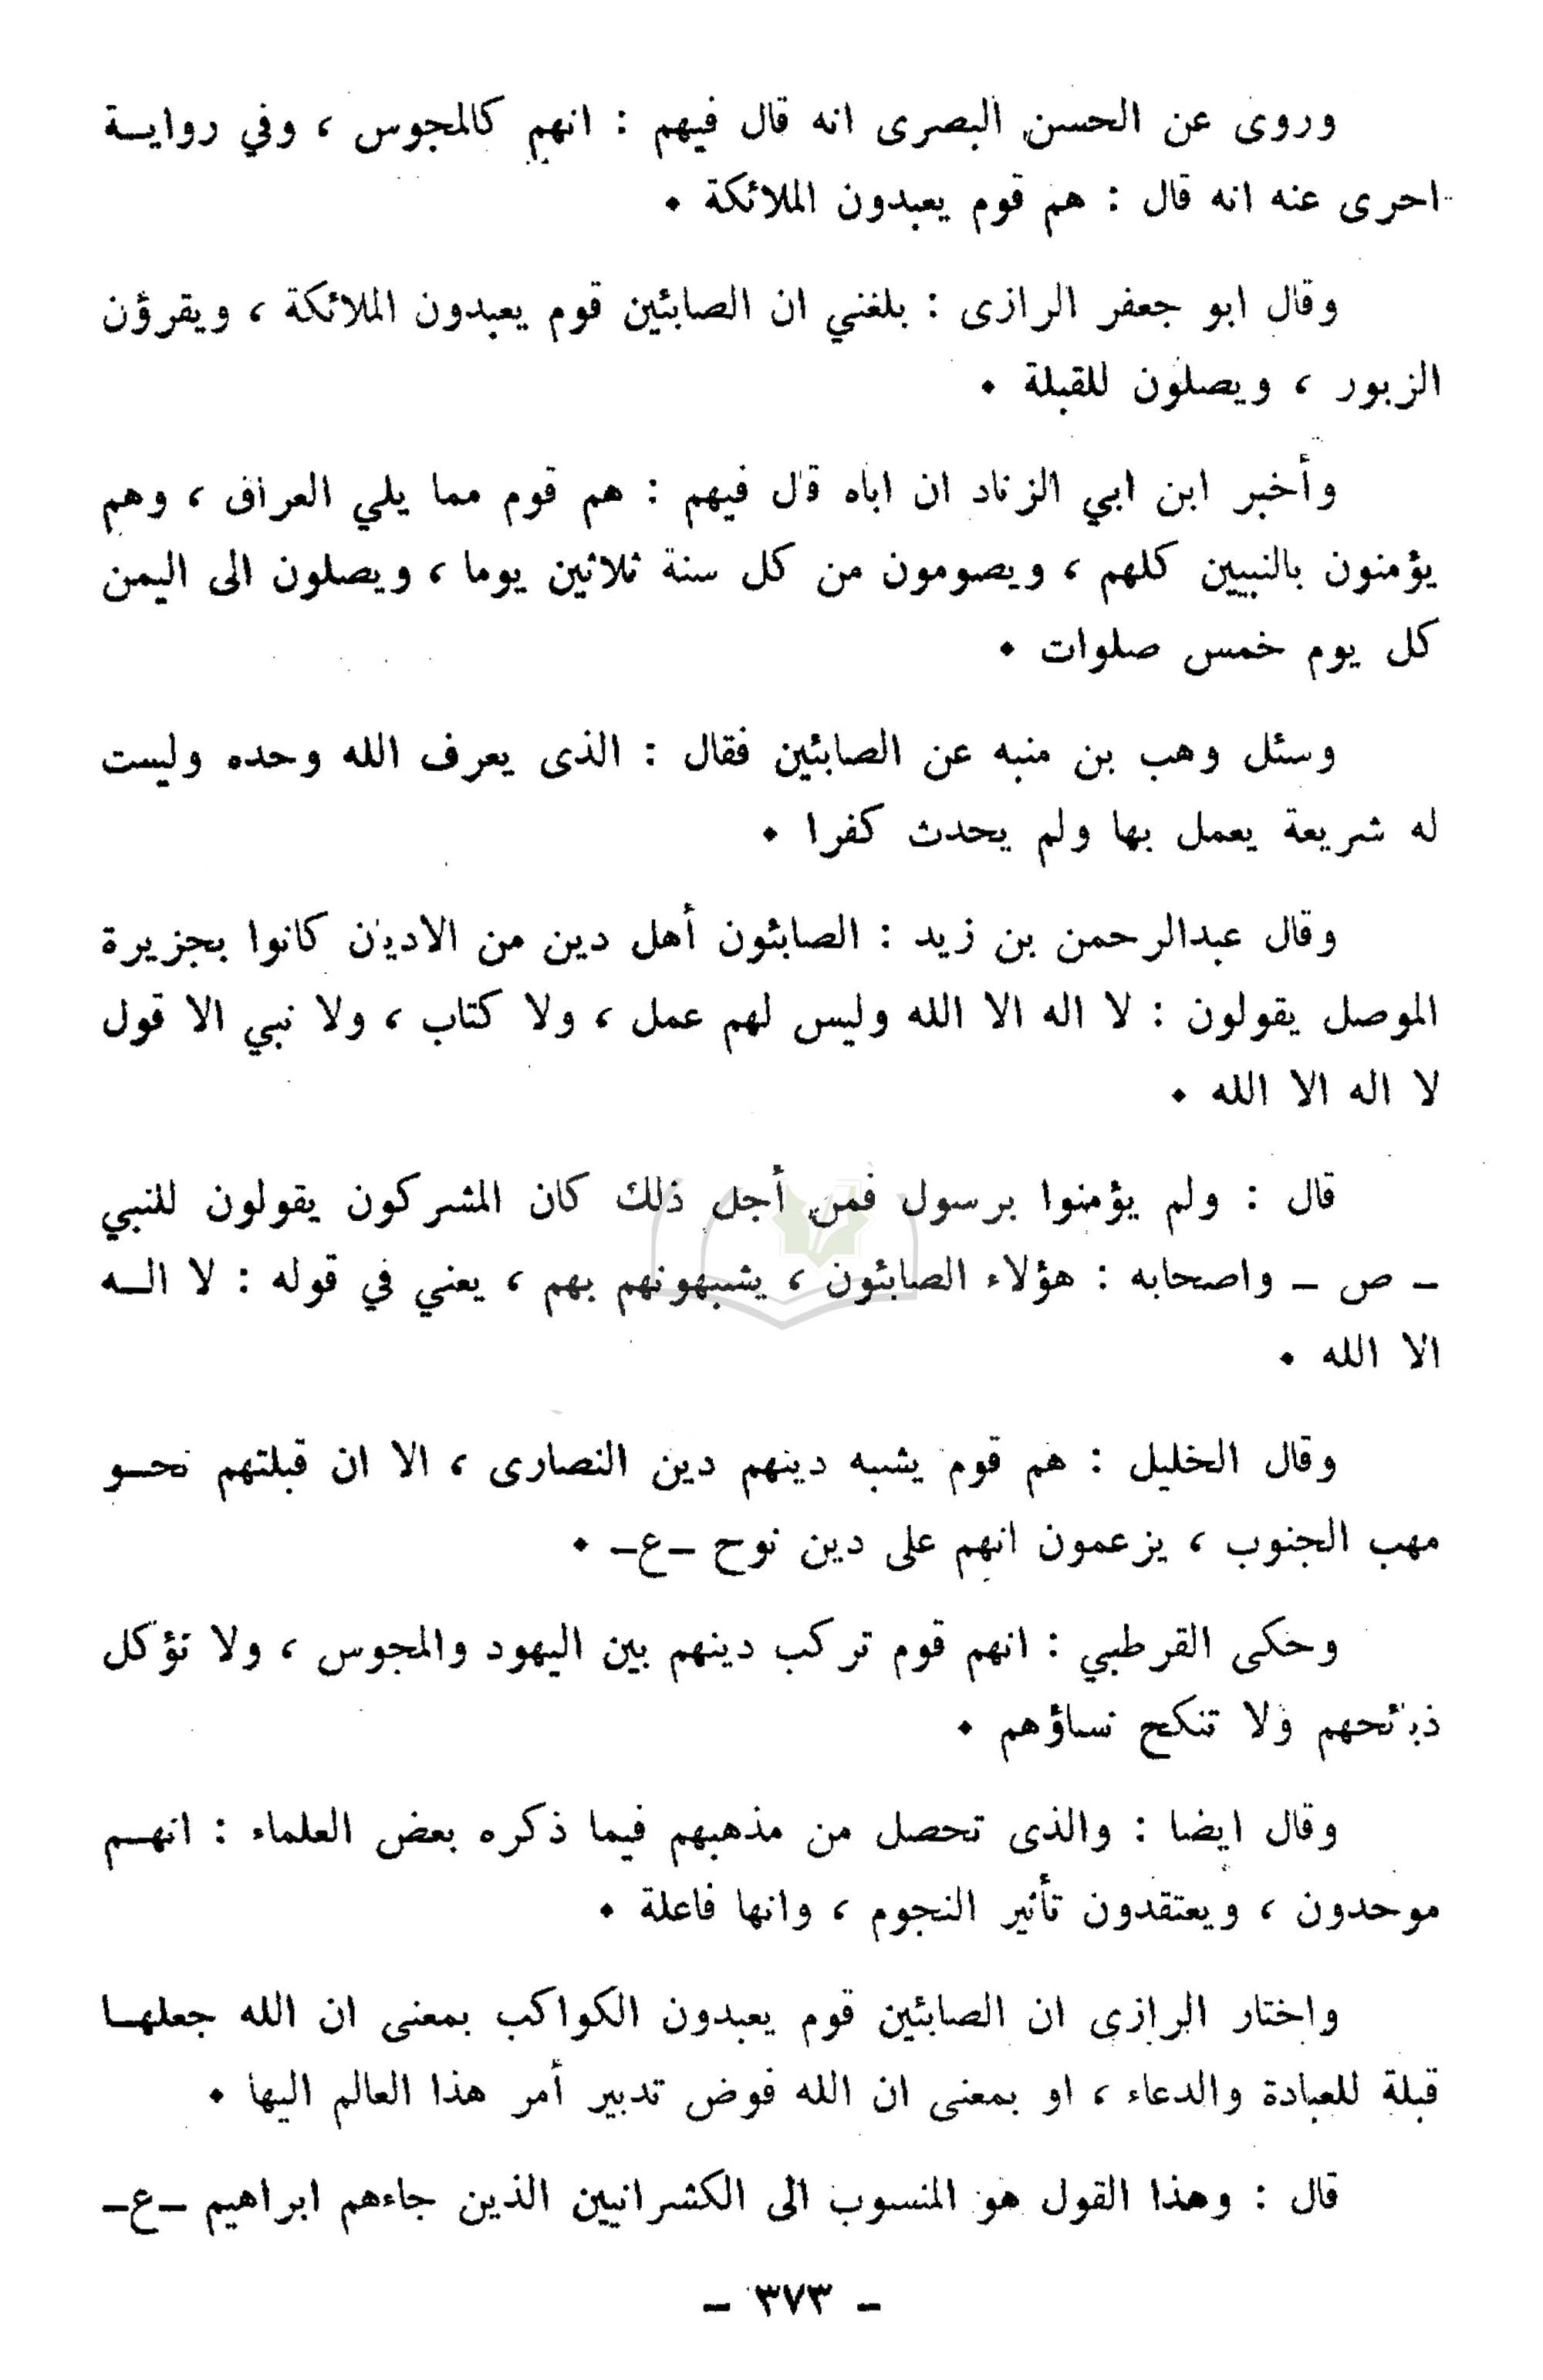 وروى عن الحسن البصرى انه قال فيهم : انهم كالمجوس ، وفي روايــة
احرى عنه انه قال : هم قوم يعبدون الملائكة •
وقال ابو جعفر الرازى : بلغني ان الصابئين قوم يعبدون الملائكة ، ويقرؤن
الزبور ، ويصلون للقبلة •
وأخبر ابن ابي الزناد ان اباه قال فيهم : هم قوم مما يلي العراق ، وهم
يؤمنون بالنبيين كلهم ، ويصومون من كل سنة ثلاثين يوما ، ويصلون الى اليمن
كل يوم خمس صلوات •
وسئل وهب بن منبه عن الصابئين فقال : الذى يعرف الله وحده وليست
له شريعة يعمل بها ولم يحدث كفرا •
وقال عبدالرحمن بن زيد : الصابئون أهل دين من الاديان كانوا بجزيرة
الموصل يقولون : لا اله الا الله وليس لهم عمل ، ولا كتاب ، ولا نبي الا قول
لا اله الا الله •
قال : ولم يؤمنوا برسول فمن أجل ذلك كان المشركون يقولون للنبي
ـ ص ـ واصحابه : هؤلاء الصابئون ، يشبهونهم بهم ، يعني في قوله : لا الــه
الا الله •
وقال الخليل : هم قوم يشبه دينهم دين النصارى ، الا ان قبلتهم نحــو
مهب الجنوب ، يزعمون انهم على دين نوح ـع ـ •
وحكى القرطبي : انهم قوم تركب دينهم بين اليهود والمجوس ، ولا تؤكل
ذبائحهم ولا تنكح نساؤهم •
وقال ايضا : والذى تحصل من مذهبهم فيما ذكره بعض العلماء : انهــم
موحدون ، ويعتقدون تأثير النجوم ، وانها فاعلة •
واختار الرازى ان الصابئين قوم يعبدون الكواكب بمعنى ان الله جعلهــا
قبلة للعبادة والدعاء ، او بمعنى ان الله فوض تدبير أمر هذا العالم اليها •
قال : وهذا القول هو المنسوب الى الكشرانيين الذين جاءهم ابراهيم ـع ـ
ـ ٣٧٣ ـ